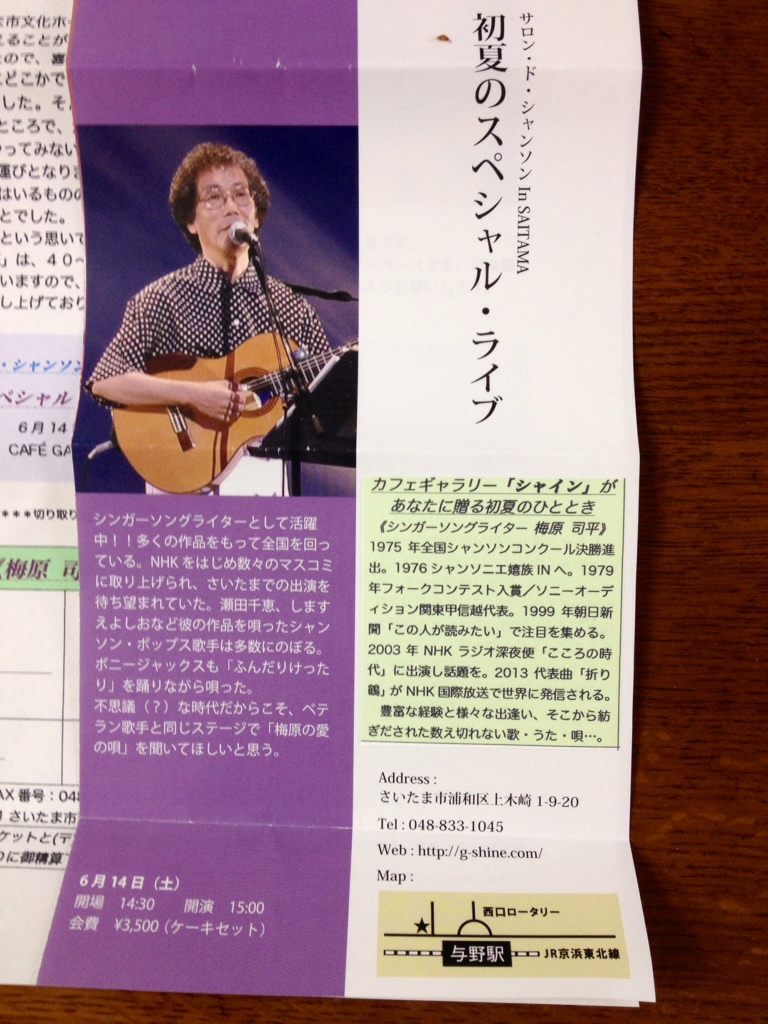 サロン・ド・シャンソン In SAITAMA
初夏のスペシャル・ライブ
カフェギャラリー「シャイン」が
あなたに贈る初夏のひととき
《シンガーソングライター 梅原 司平》
1975 年全国シャンソンコンクール決勝進
出。1976 シャンソニエ嬉族 IN へ。1979
年フォークコンテスト入賞／ソニーオーデ
ィション関東甲信越代表。1999 年朝日新
聞「この人が読みたい」で注目を集める。
2003 年 NHK ラジオ深夜便「こころの時
代」に出演し話題を。2013 代表曲「折り
鶴」が NHK 国際放送で世界に発信される。
豊富な経験と様々な出逢い、そこから紡
ぎだされた数え切れない歌・うた・唄…。
Address :
さいたま市浦和区上木崎 1-9-20
Tel : 048-833-1045
Web : http://g-shine.com/
Map :
西口ロータリー
★
与野駅
JR京浜東北線
シンガーソングライターとして活躍
中！！多くの作品をもって全国を回っ
ている。NHK をはじめ数々のマスコミ
に取り上げられ、さいたまでの出演を
待ち望まれていた。瀬田千恵、します
えよしおなど彼の作品を唄ったシャン
ソン・ポップス歌手は多数にのぼる。
ボニージャックスも「ふんだりけった
り」を踊りながら唄った。
不思議（？）な時代だからこそ、ベテ
ラン歌手と同じステージで「梅原の愛
の唄」を聞いてほしいと思う。
6 月 14 日（土）
開場 14:30 開演 15:00
会費 ¥3,500（ケーキセット）
市文化ホ
えることが
ので、喜
どこかで
した。そ
ところで、
ってみない
運びとなりま
はいるものの
とでした。
という思いで
」は、４０〜
いますので、
し上げており
・シャンソン
ペシャル
6 月 14
CAFÉ GA
***切り取り
《梅原 司
AX 番号：048
さいたま市
ケットと(デ
りに御精算